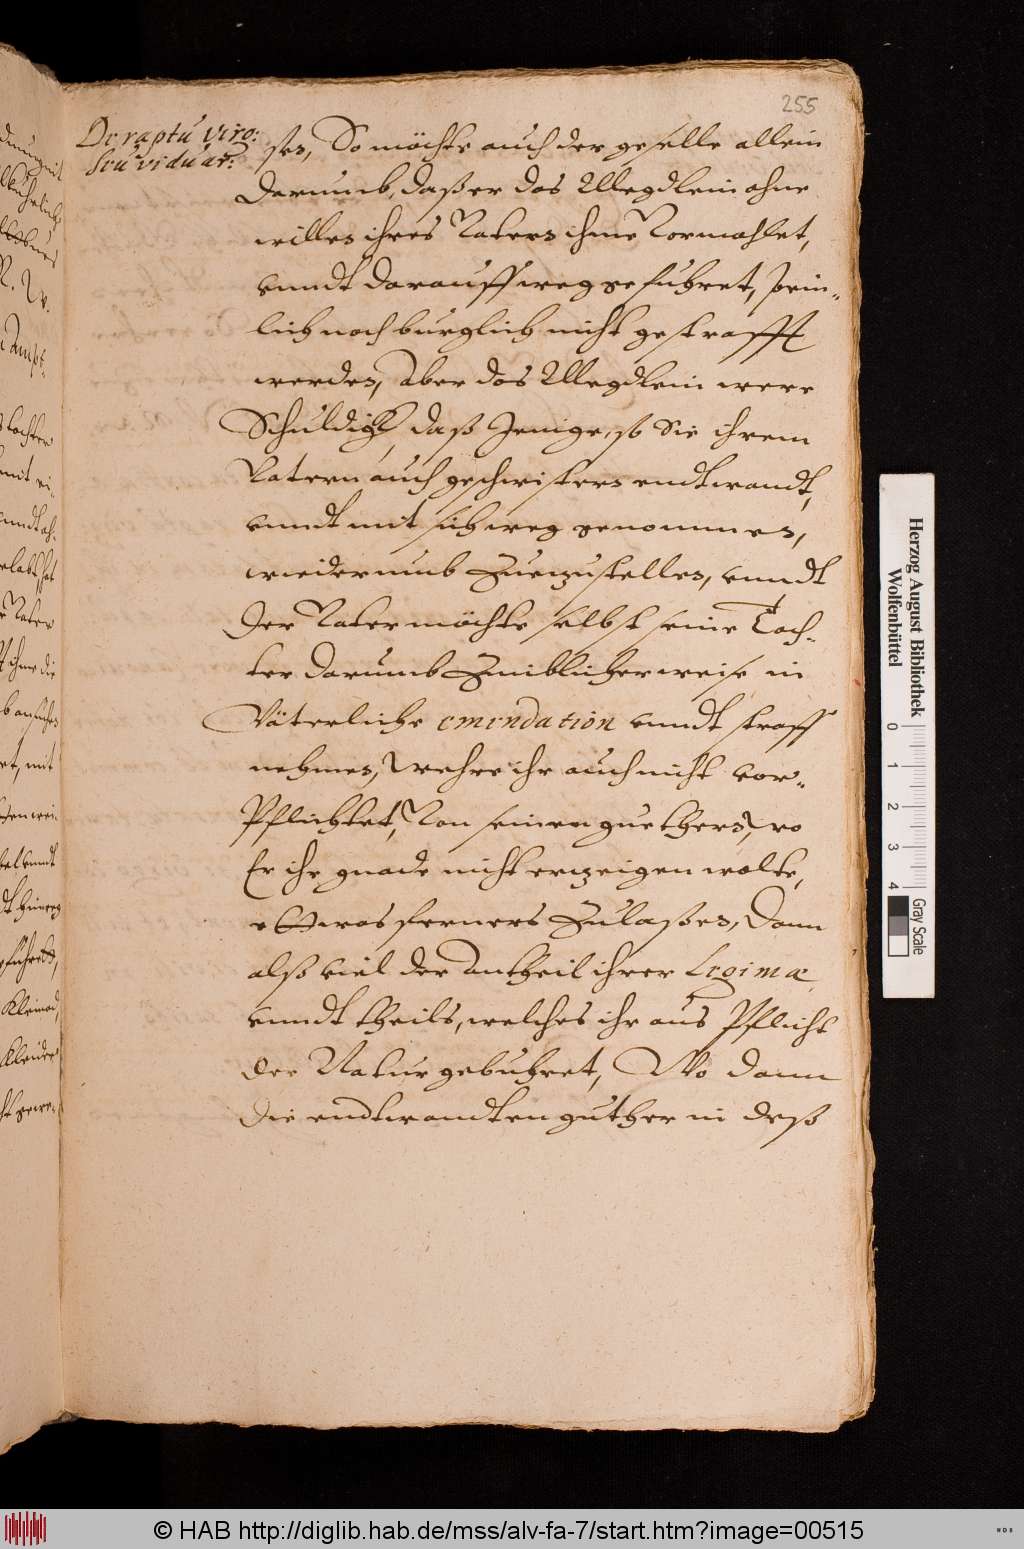 255
De raptu virg:
seu viduar:
sen, So möchte auch der geselle allein
Darumb, daß er das Megdlein ohne
willen ihres Vaters ihme Vormahlet,
vnndt darauff weg gefuhret, pein-
lich noch burglich nicht gestrafft
werden, Aber das Megdlein were
Schuldig, daß Jenige, so Sie ihrem
Vatern auch geschwistern endtwandt,
vnndt mit sich weg genommen,
wiederumb Zuezustellen, vnndt
Der Vater möchte selbst seine Toch-
ter darumb Zimblicher weise in
Väterliche emendation vnndt straff
nehmen, Wehre ihr auch nicht vor-
Pflichtet, Von seinen guethern, wo
Er ihr gnade nicht erzeigen wolte,
ettwas ferners Zulaßen, Dann
alß viel der Antheil ihrer Legimæ
vnndt theils, welches ihr aus Pflicht
der Natur gebuhret, Wo dann
die endtwandten guther in deß
Herzog August Bibliothek
Wolfenbüttel
0 1 2 3 4
Gray Scale
© HAB http://diglib.hab.de/mss/alv-fa-7/start.htm?image=00515